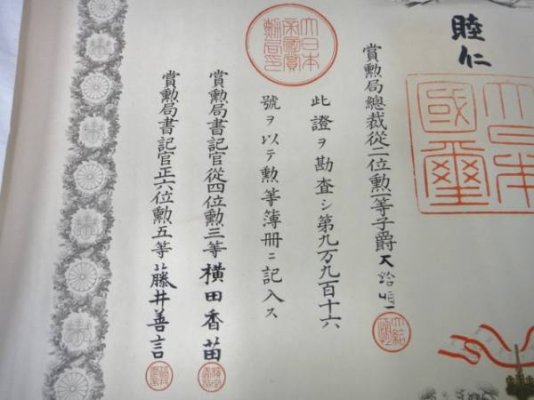 睦仁
大日本
國璽
賞勲局總裁從二位勲一等子爵大給恒
此證ヲ勘査シ第九万九百十六
號ヲ以テ勲等簿冊ニ記入ス
大日本
帝國賞
勲局印
賞勲局書記官從四位勲三等横田香苗
賞勲局書記官正六位勲五等藤井善言